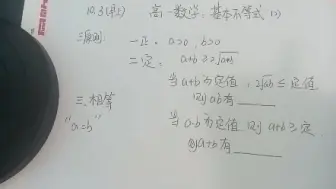 10.3(周上) 高一数学:基本不等式(1)
三原则 一正: a>0, b>0
二定: a+b≥2√ab
当a+b为定值, 2√ab≤定值
则ab有____
三、相等
"a=b"
当a·b为定值 则a+b≥定
则a+b有____